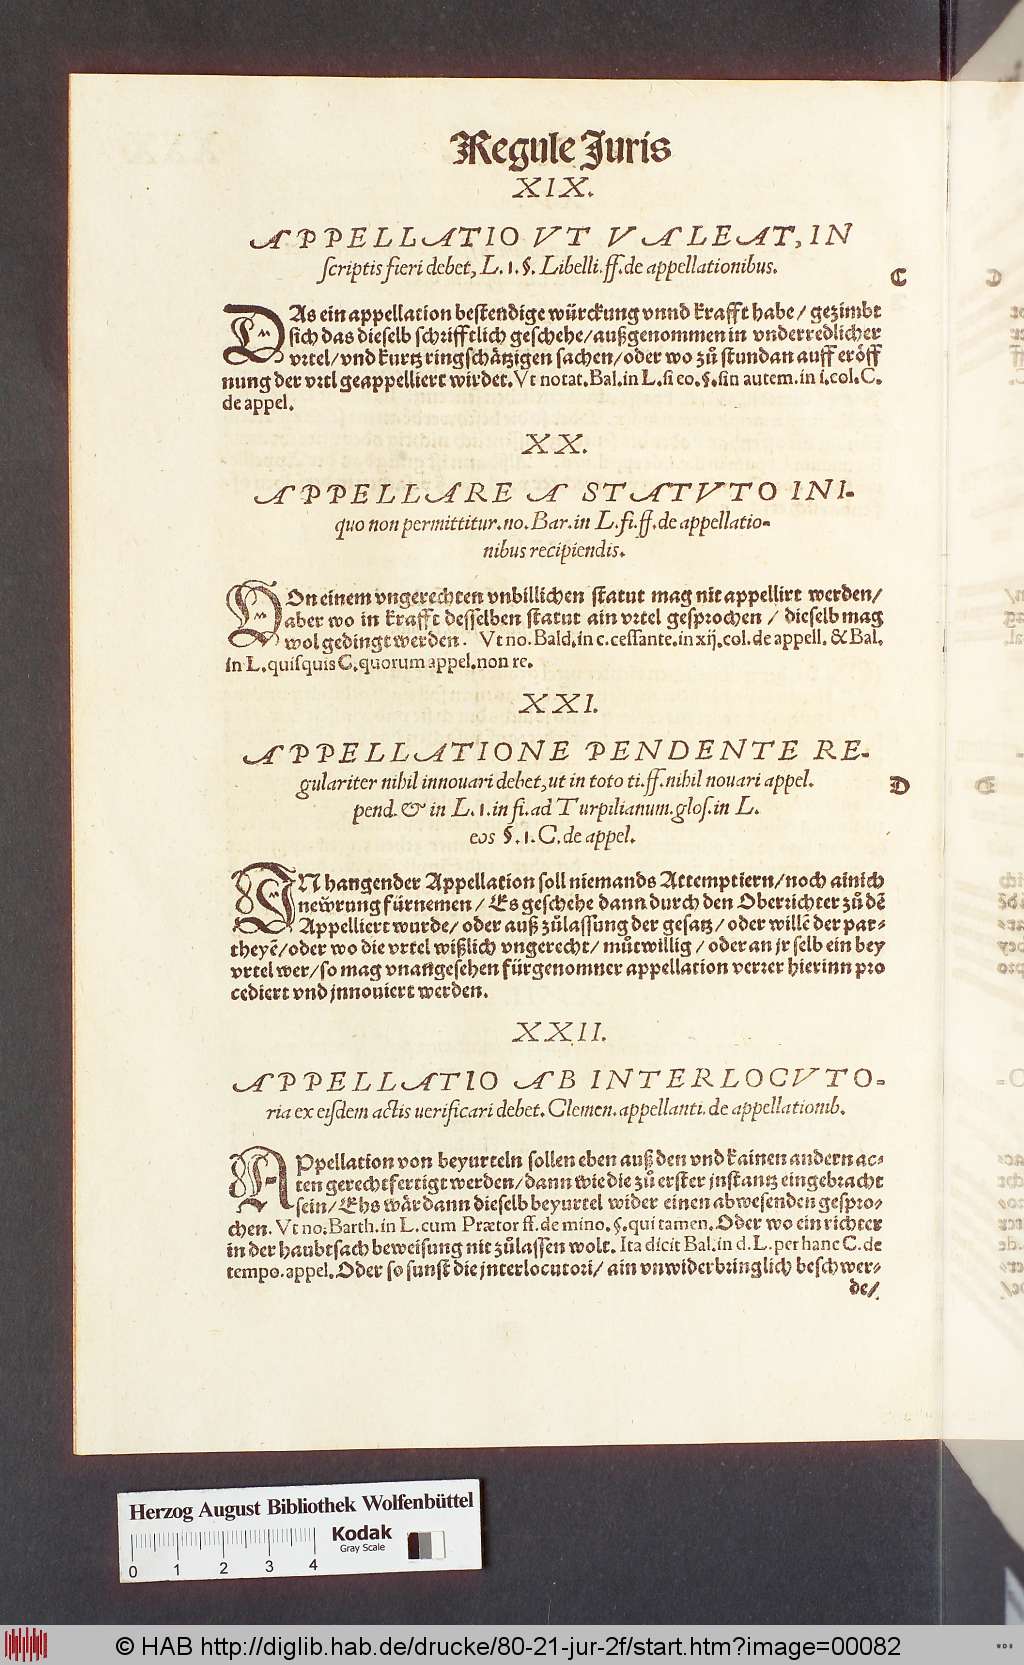 Regule Juris
XIX.
APPELLATIO VT VALEAT, IN
scriptis fieri debet, L.1.§. Libelli.ff.de appellationibus.
C
DAs ein appellation bestendige würckung vnnd krafft habe/ gezimbt
sich das dieselb schrifftlich geschehe/außgenommen in vnderredlicher
vrtel/vnd kurtz ringschätzigen sachen/oder wo zů stundan auff eröff
nung der vrtl geappelliert wirdet.Vt notat.Bal.in L.si eo.§.sin autem.in i.col.C.
de appel.
XX.
APPELLARE A STATVTO INI-
quo non permittitur.no.Bar.in L.fi.ff.de appellatio-
nibus recipiendis.
VOn einem vngerechten vnbillichen statut mag nit appellirt werden/
aber wo in krafft desselben statut ain vrtel gesprochen / dieselb mag
wol gedingt werden. Vt no.Bald.in c.cessante.in xij.col.de appell.&Bal.
in L.quisquis C.quorum appel.non re.
XXI.
APPELLATIONE PENDENTE RE-
gulariter nihil innouari debet,ut in toto ti.ff.nihil nouari appel.
D
pend.& in L.1.in fi.ad Turpilianum.glos.in L.
eos §.1.C.de appel.
IN hangender Appellation soll niemands Attemptiern/noch ainich
newrung fürnemen / Es geschehe dann durch den Oberrichter zů dē
Appelliert wurde/ oder auß zůlassung der gesatz/ oder willē der par-
theyē/oder wo die vrtel wißlich vngerecht/ můtwillig / oder an jr selb ein bey
vrtel wer/so mag vnangesehen fürgenomner appellation verrer hierinn pro
cediert vnd jnnouiert werden.
XXII.
APPELLATIO AB INTERLOCVTO-
ria ex eisdem actis uerificari debet.Clemen.appellanti.de appellationib.
APpellation von beyurteln sollen eben auß den vnd kainen andern ac-
ten gerechtfertigt werden/dann wie die zů erster jnstantz eingebracht
sein/ Ehs wär dann dieselb beyurtel wider einen abwesenden gespro-
chen. Vt no.Barth.in L.cum Prætor ff.de mino.§.qui tamen.Oder wo ein richter
in der haubtsach beweisung nit zůlassen wolt. Ita dicit Bal.in d.L.per hanc C.de
tempo.appel.Oder so sunst die jnterlocutori/ ain vnwiderbringlich beschwer-
de/
Herzog August Bibliothek Wolfenbüttel
Kodak
Gray Scale
0 1 2 3 4
© HAB http://diglib.hab.de/drucke/80-21-jur-2f/start.htm?image=00082